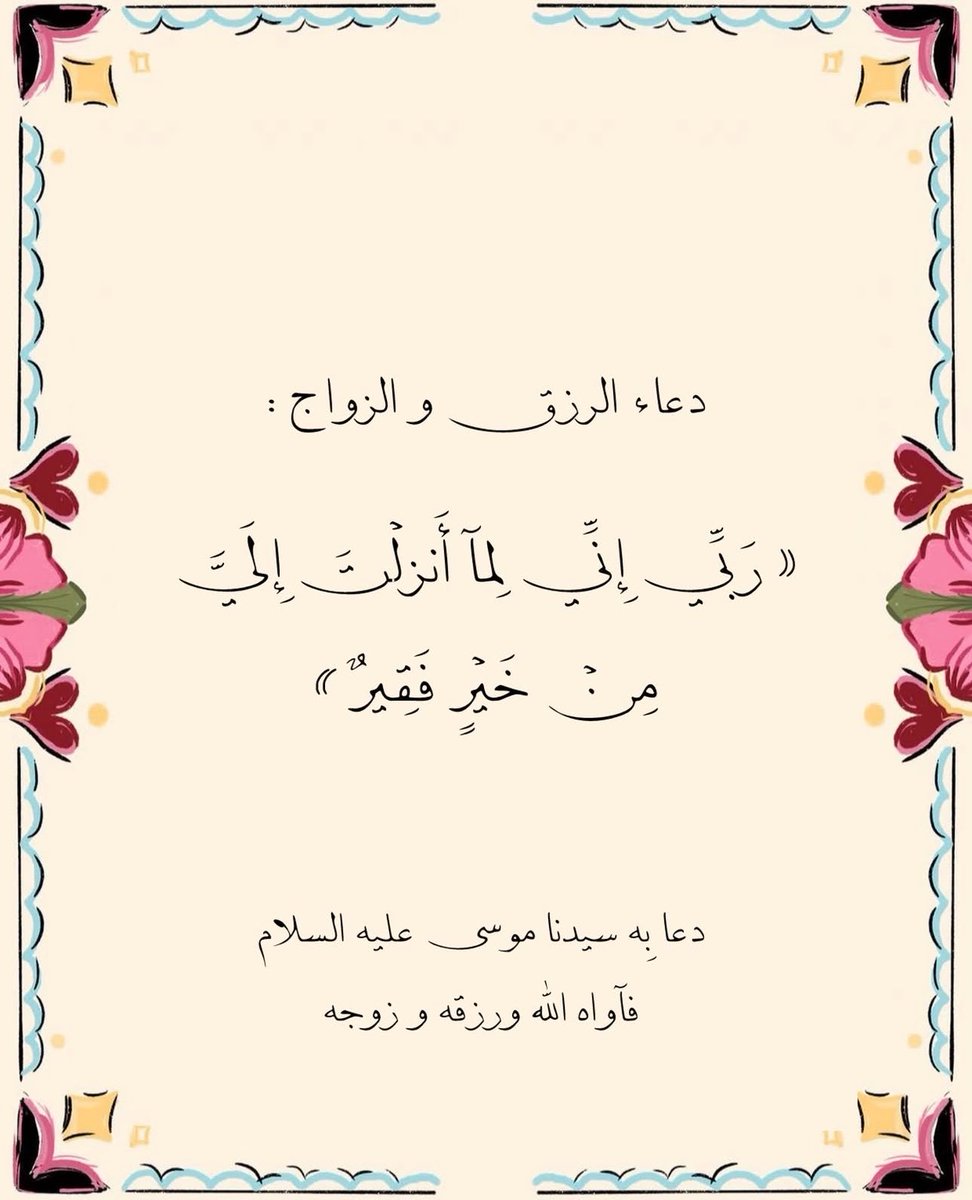 دعاء الرزق و الزواج :
«رَبِّي إِنِّي لِمَآ أَنزَلۡتَ إِلَيَّ
مِنۡ خَيۡرٍ فَقِيرٌ»
دعا بِه سيدنا موسى عليه السلام
فآواه الله ورزقه و زوجه